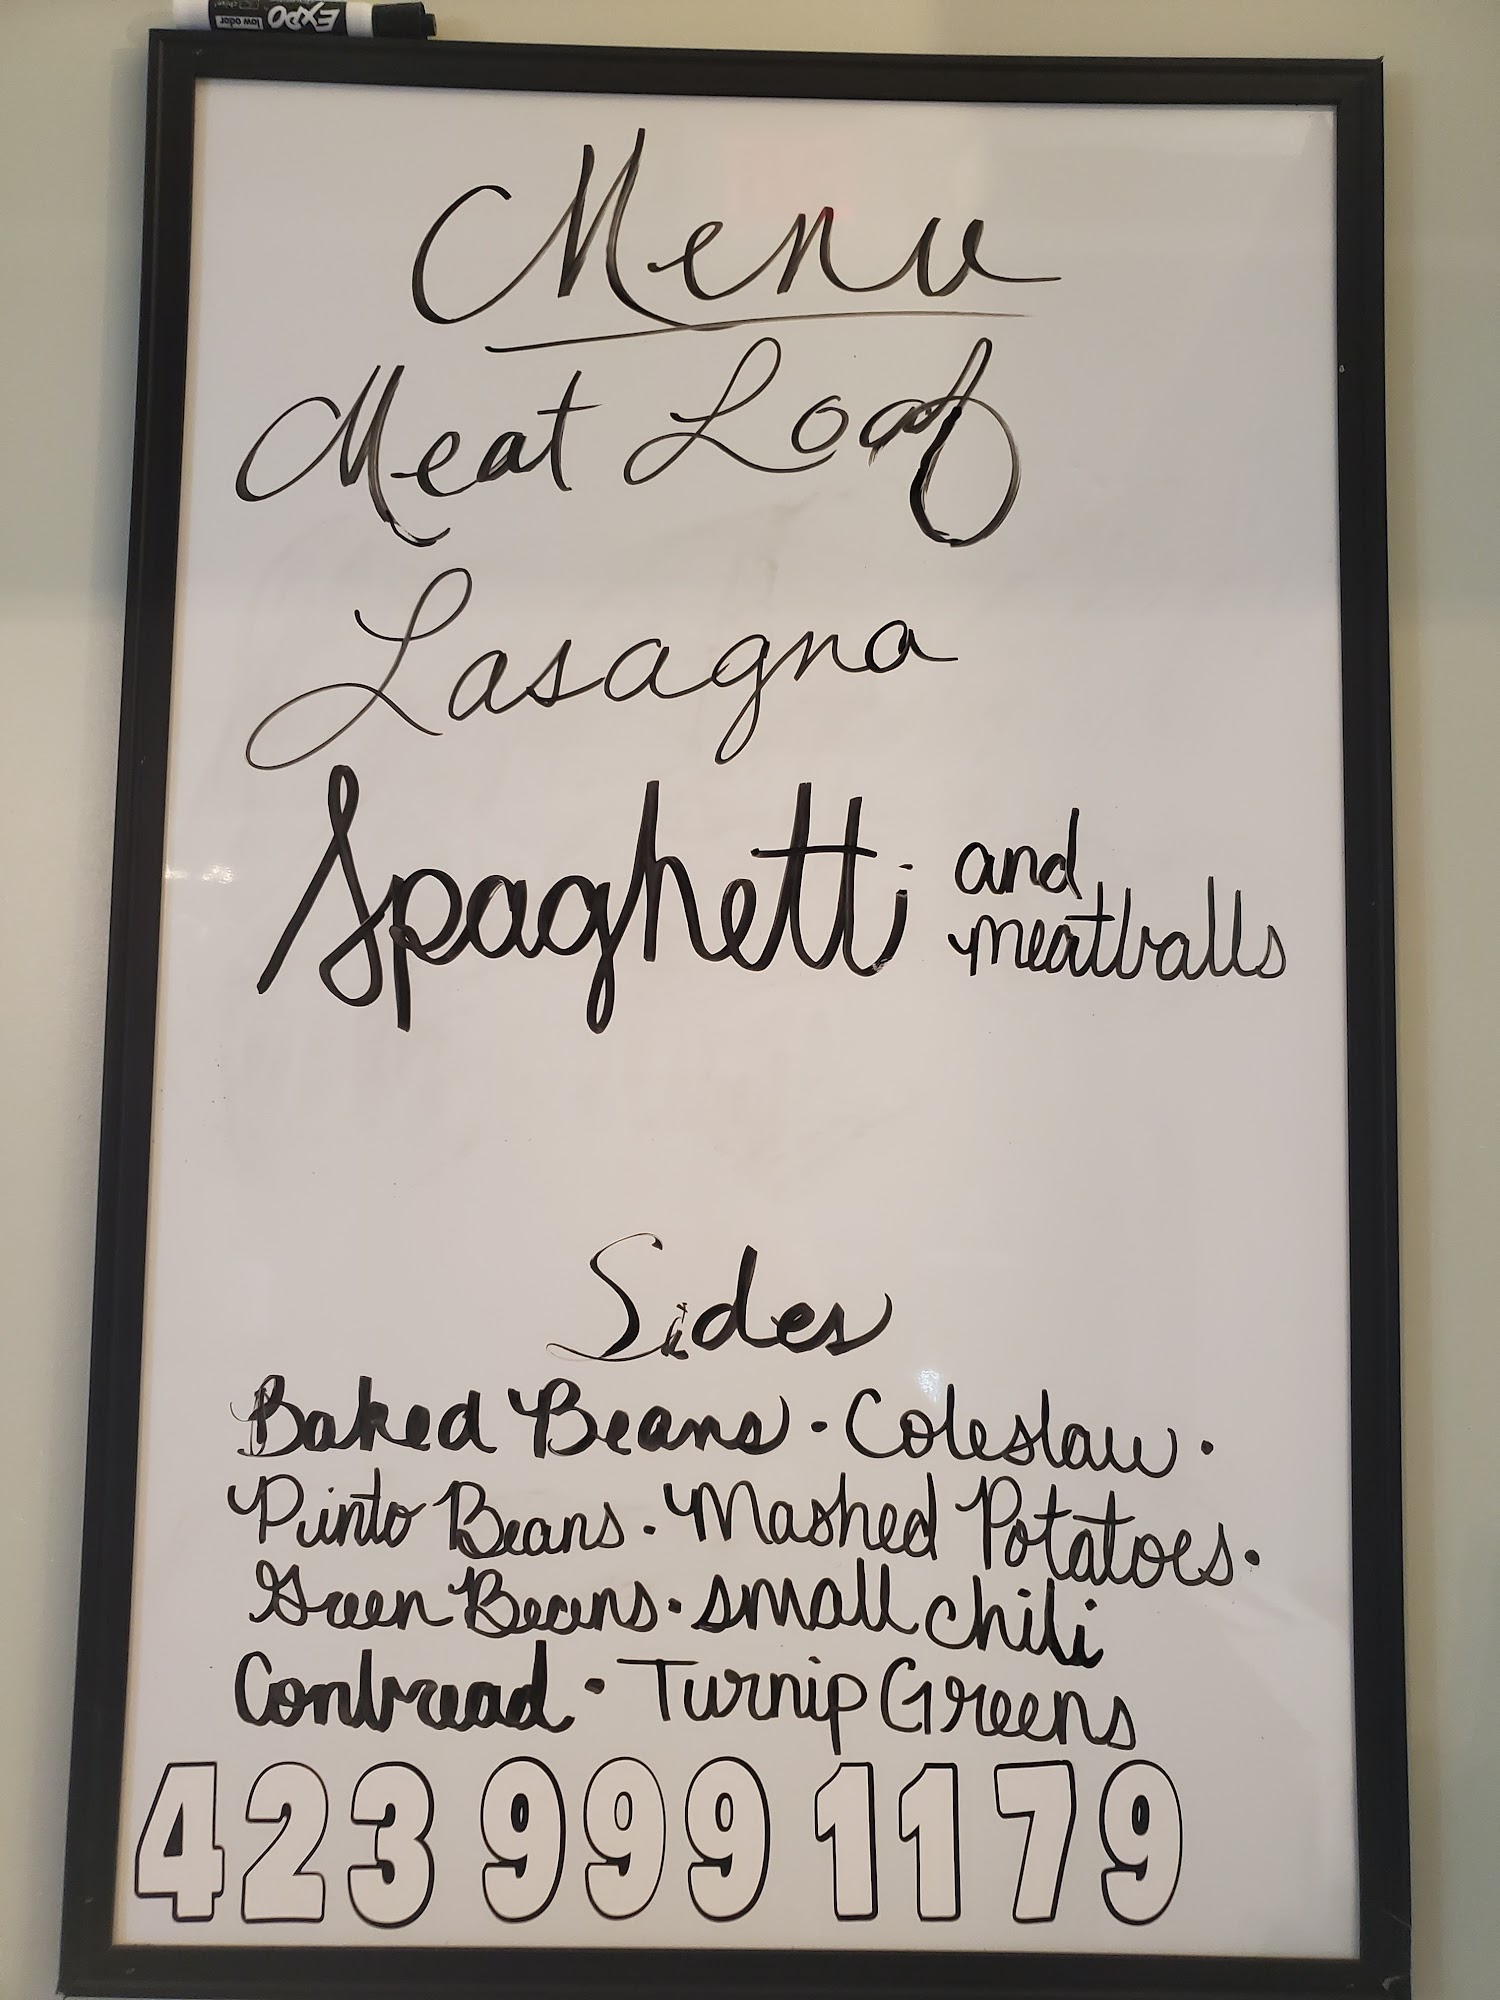 EXPO
low odor
Menu
Meat Loaf
Lasagna
Spaghetti and
meatballs
Sides
Baked Beans · Coleslaw ·
Pinto Beans · Mashed Potatoes ·
Green Beans · small chili
Conbread · Turnip Greens
423 999 1179